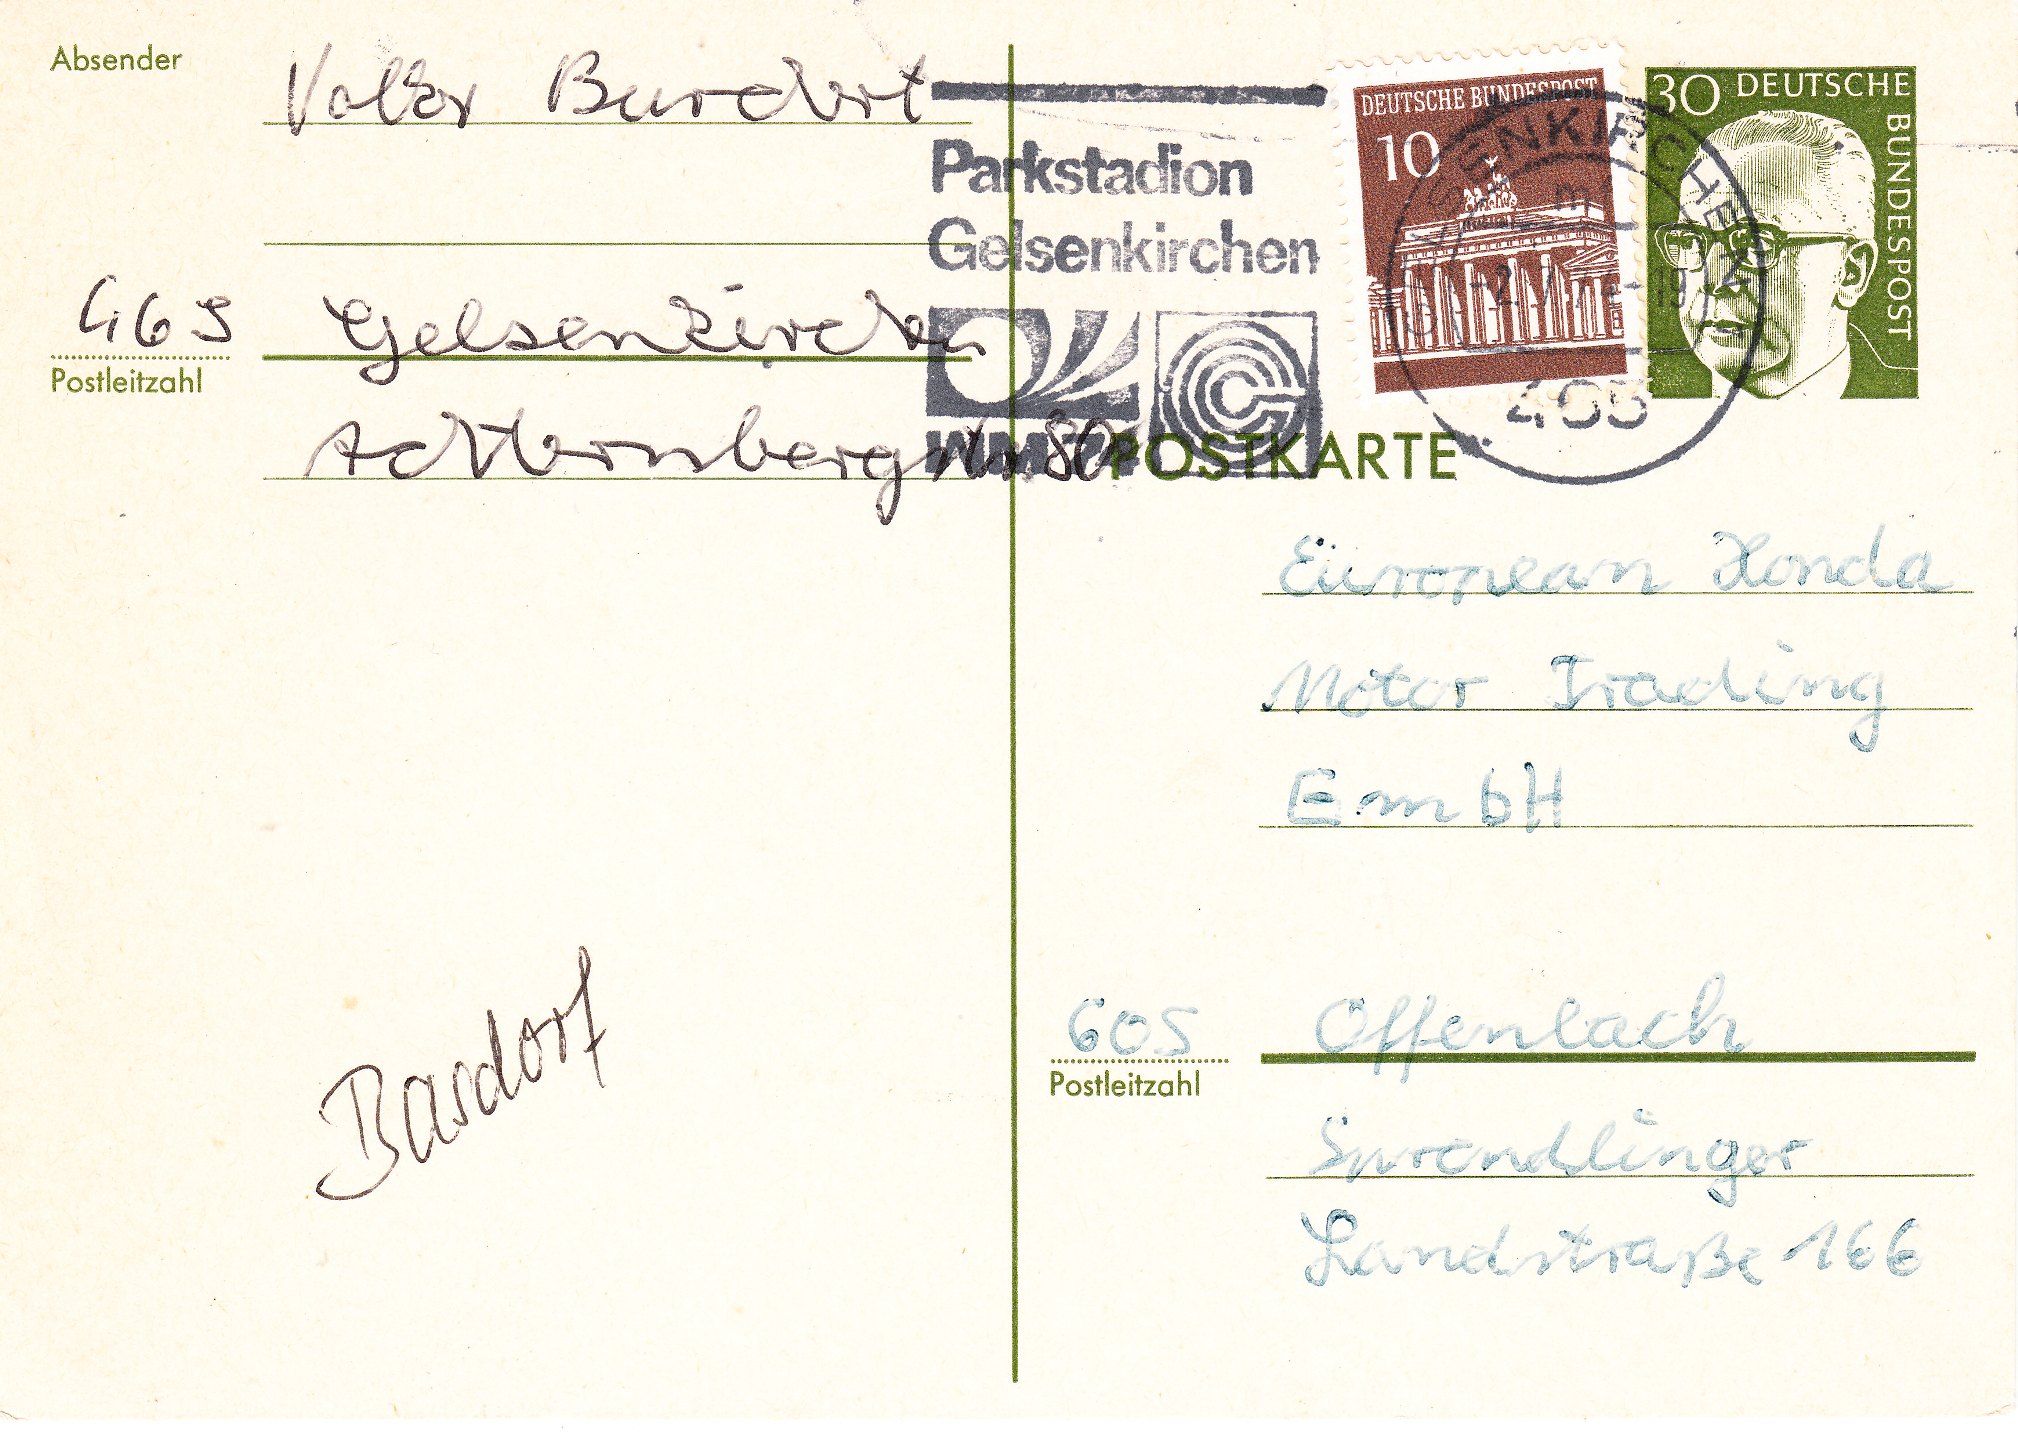 Absender
Volker Burchert
465 Gelsenkirchen
Postleitzahl
Achternbergstr 80
Parkstadion
Gelsenkirchen
WM74
DEUTSCHE BUNDESPOST
10
30 DEUTSCHE
BUNDESPOST
GELSENKIRCHEN 1
-2.7.74-19
465
POSTKARTE
European Honda
Motor Trading
GmbH
605 Offenbach
Postleitzahl
Sprendlinger
Landstraße 166
Basdorf